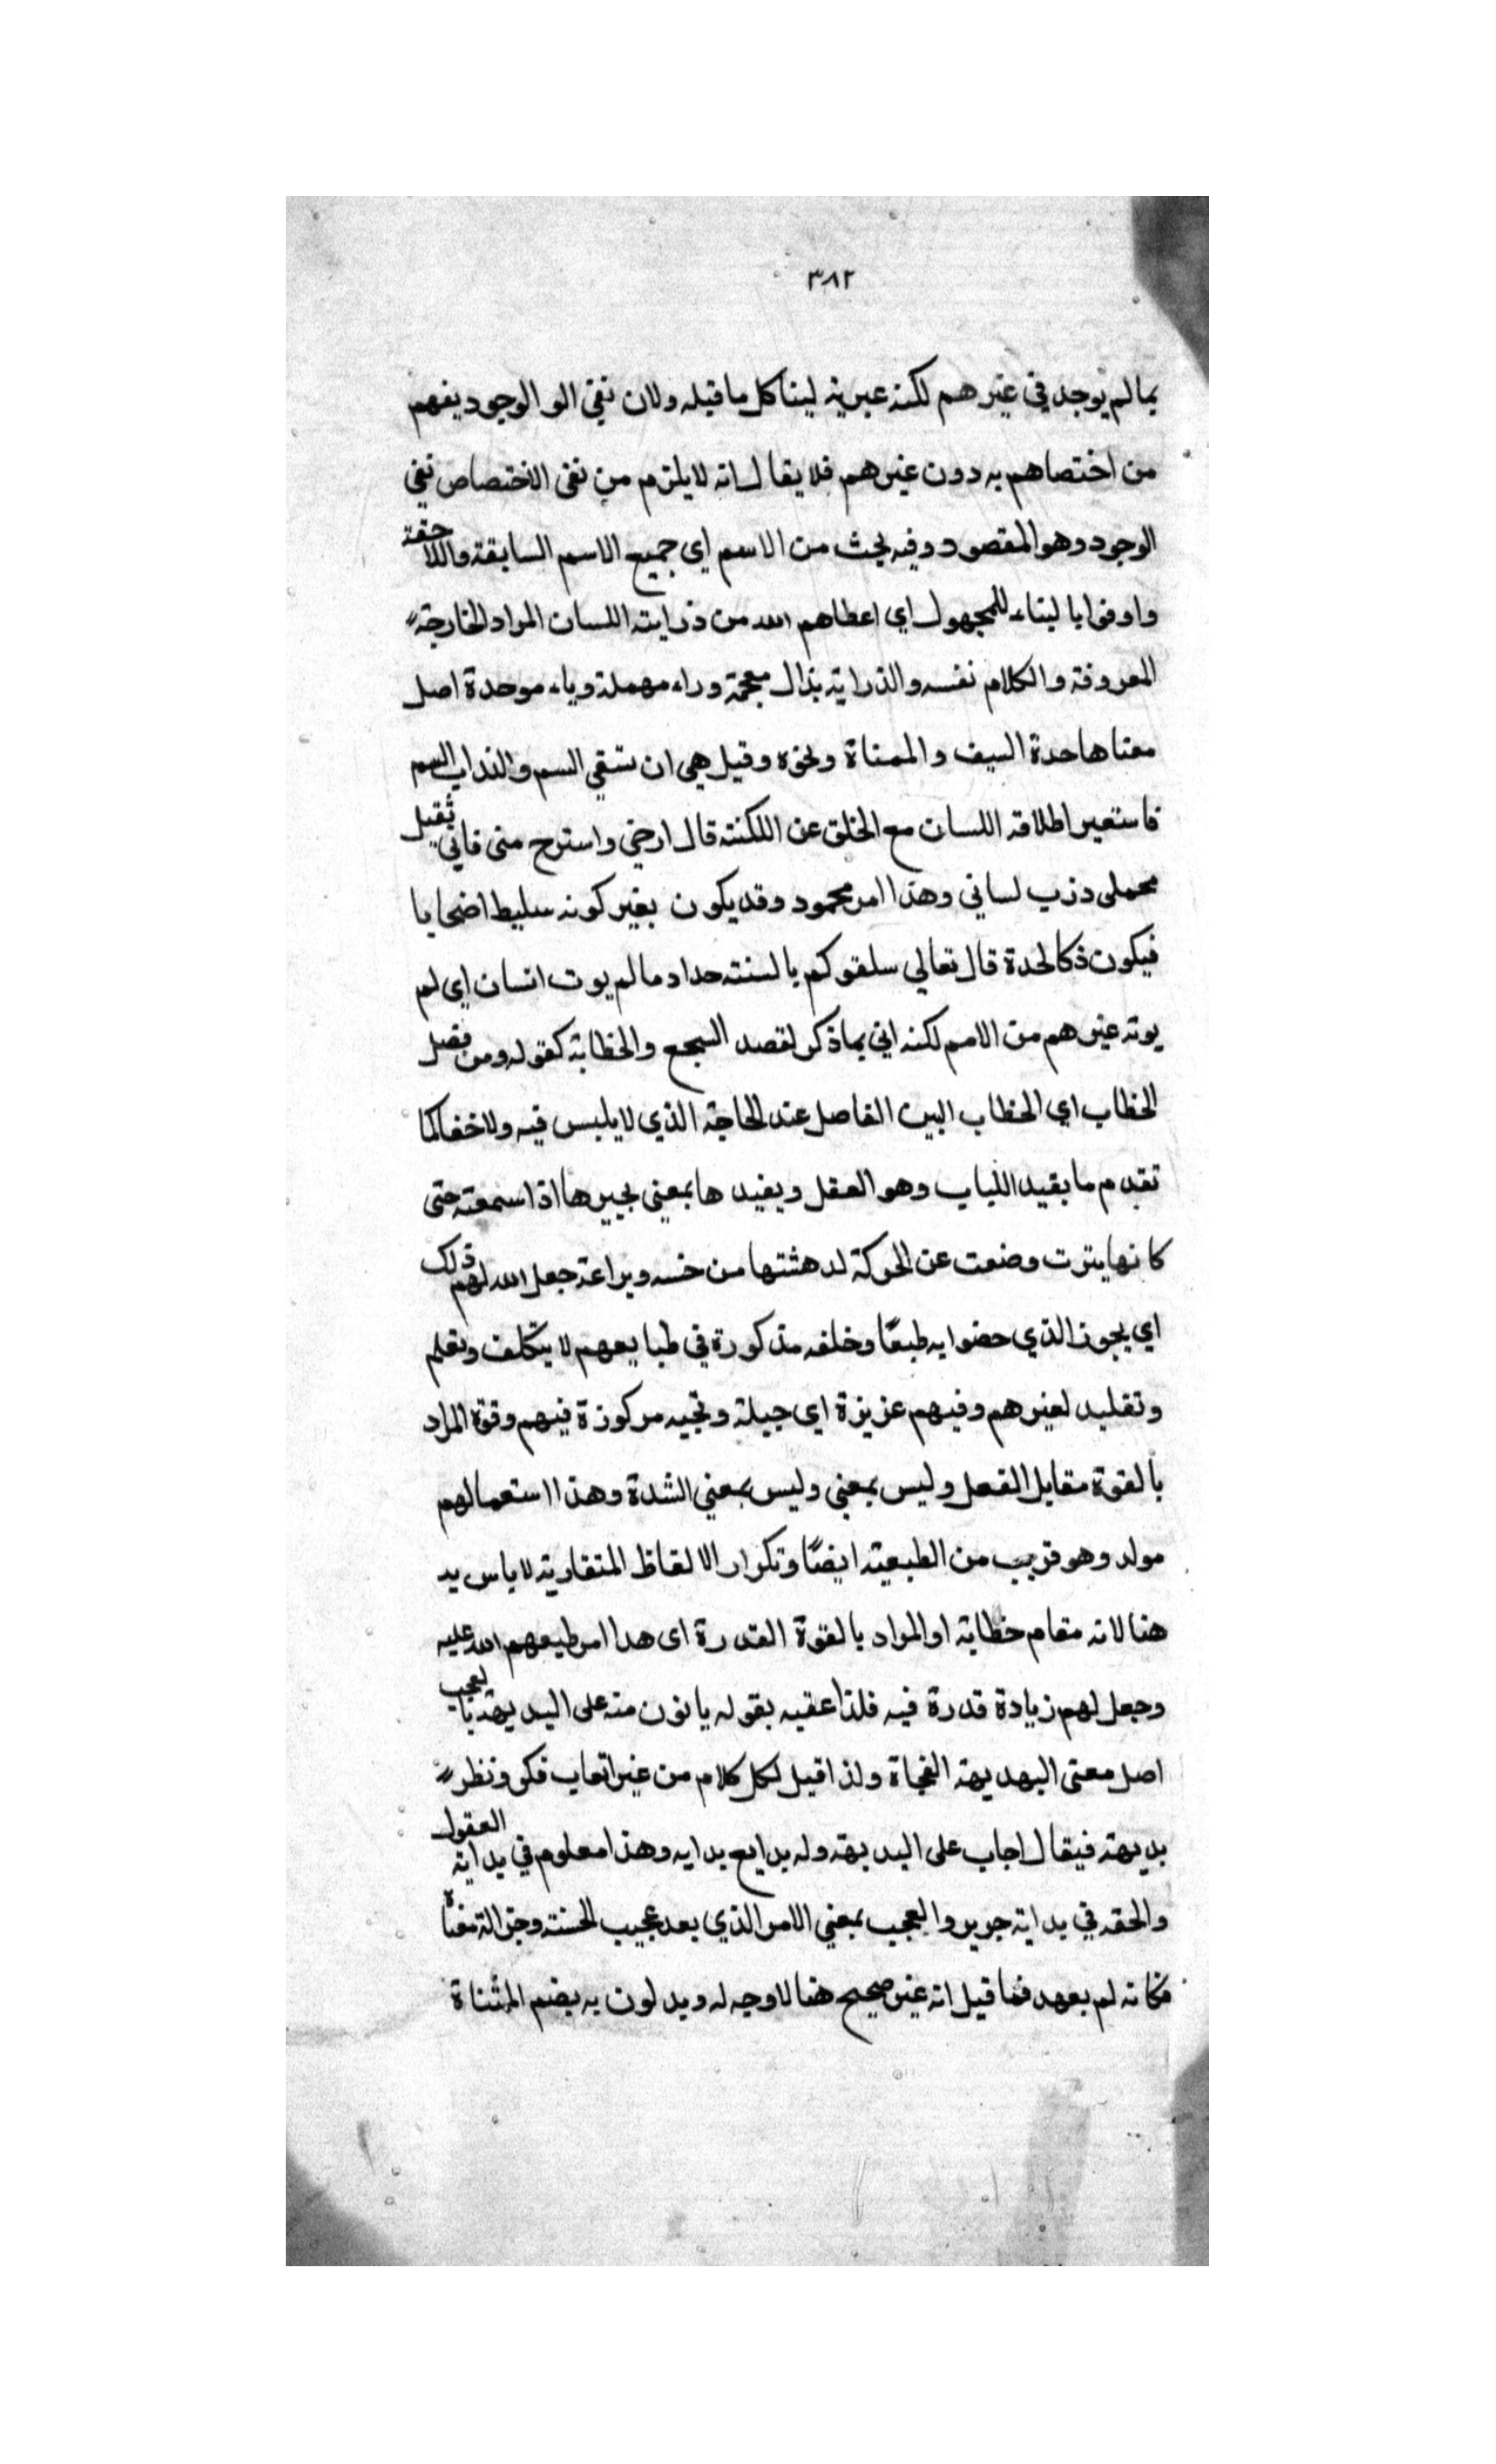 ٣٨٢
بما لم يوجد في غيرهم لكنه عبر به ليشاكل ما قبله ولان نفي الو الوجود يفهم
من اختصاهم به دون غيرهم فلا يقال انه لا يلزم من نفى الاختصاص نفي
الوجود وهو المقصود وفيه بحث من الاسم اي جميع الاسم السابقة واللاحقة
واوفوا بالبناء للمجهول اي اعطاهم الله من ذرابته اللسان المراد الخارجة
المعروفة والكلام نفسه والذرابة بذال معجمة وراء مهملة وباء موحدة اصل
معناها حدة السيف و ونحوه وقيل هي ان تسقي السم والذراب السم
فاستعير اطلاقه اللسان مع الخلق عن اللكنته قال ارحني واسترح منى فاني ثقيل
محملى دزب لساني وهذا امر محمود وقد يكون بغير كونه سليط
فيكون ذكالحدة قال تعالي سلقوكم بالسنته حداد ما لم يوت انسان اى لم
يوته غيرهم من الامم لكنه اتي بماذكر لقصد السجع والخطابة كقوله ومن فصل
الخطاب اي الخطاب البين الفاصل عند الحاجة الذي لا يلبس فيه ولا خفا كما
تقدم ما يقيد اللباب وهو العقل ويفيدها بمعني يحيرها اذا سمعته حتى
كانها وضعت عن الحركة لدهشتها من وبراعة جعل الله لهم ذلك
اي الذي حضوا به طبعًا وخلفه مذكورة في طبايعهم لا يتكلف وتعلم
وتقليد لغيرهم وفيهم عزيزة اي جبلة مركوزة فيهم وقوة المراد
بالقوة مقابل الفعل وليس بمعني وليس بمعني الشدة وهذا استعمالهم
مولد وهو قريب من الطبيعة ايضًا وتكرار الالفاظ المتقاربة لا باس يد
هنا لانه مقام خطابة او المراد بالقوة القدرة اى هدا امر طبعهم الله عليه
وجعل لهم زيادة قدرة فيه فلذا عقبه بقوله ياتون منه على البديهة بالعجب
اصل معتى البهديهة الفجاة ولذا قيل لكل كلام من غير اتعاب فكر ونظر
بديهة فيقال اجاب على البديهة وله بدايع بدايه وهذا معلوم في بداية العقول
والحقه في بداية جرير والعجب بمعني الامر الذي يعد عجيب لحسنته وجزالة معناه
فكانه لم يعهد فما قيل انه غير صحيح هنا لا وجه له ويدلون به بضم المثناة